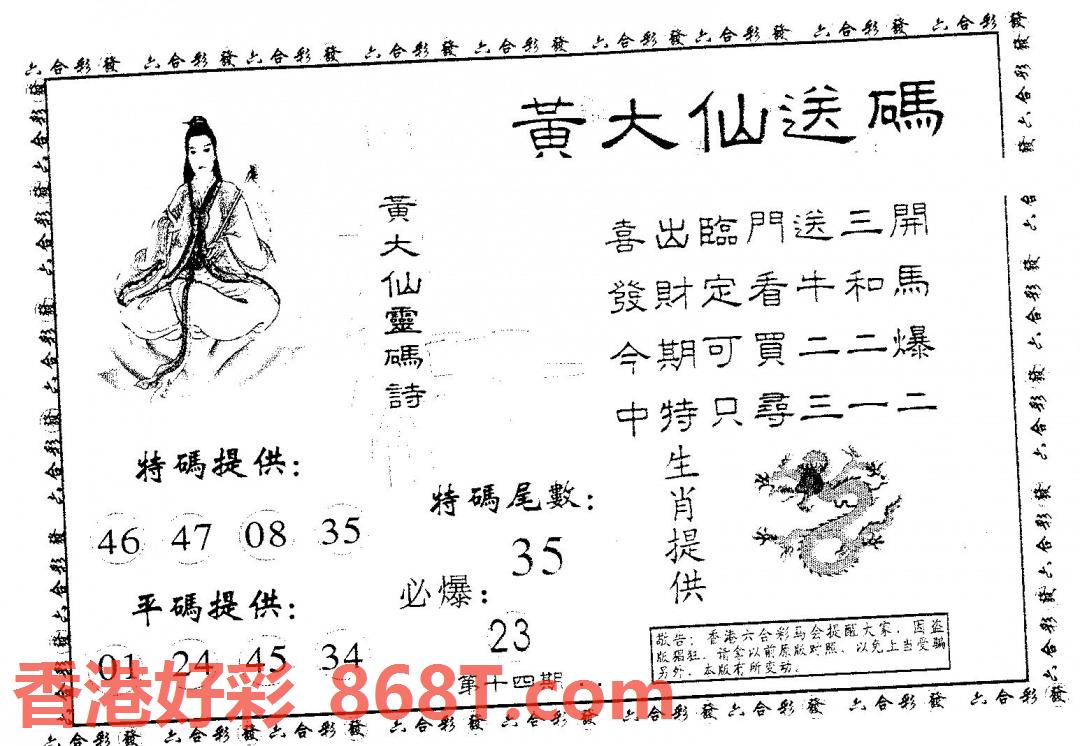 六合彩發 六合彩發 六合彩發 六合彩發 六合彩發 六合彩發 六合彩發 六合彩發 六合彩發
黃大仙送碼
黃大仙靈碼詩
喜出臨門送三開
發財定看牛和馬
今期可買二二爆
中特只尋三一二
特碼提供:
46 47 08 35
平碼提供:
01 24 45 34
特碼尾數:
35
必爆:
23
第十四期
生肖提供
敬告：香港六合彩马会提醒大家，因盗
版猖狂，请拿以前原版对照，以免上当受骗
另外，本版有所变动。
香港好彩 868T.com